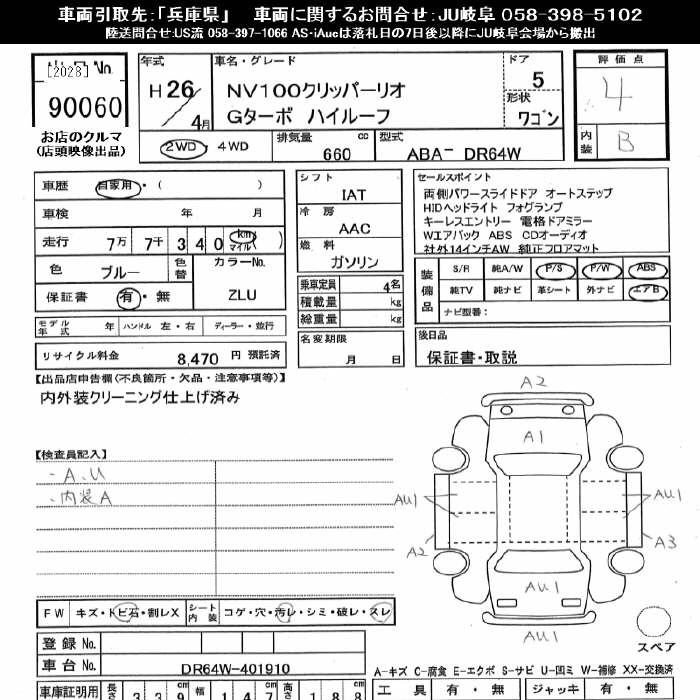 車両引取先:「兵庫県」　車両に関するお問合せ:JU岐阜 058-398-5102
陸送問合せ:US流 058-397-1066 AS-iAucは落札日の7日後以降にJU岐阜会場から搬出
[2028] No.
90060
お店のクルマ
(店頭映像出品)
年式
H 26
4月
車名・グレード
NV100クリッパーリオ
Gターボ ハイルーフ
ドア
5
形状
ワゴン
評価点
4
内装
B
2WD・4WD
排気量 cc
660
型式
ABA- DR64W
車歴 自家用・( )
車検 年 月
走行 7万 7千 3 4 0 km マイル ( )
色 ブルー 色替
カラーNo.
ZLU
保証書 有・無
モデル年式 年 ハンドル 左・右 ディーラー・並行
リサイクル料金 8,470 円 預託済
シフト
IAT
冷房
AAC
燃料
ガソリン
乗車定員 4名
積載量 kg
総重量 kg
名変期限
月 日
セールスポイント
両側パワースライドドア オートステップ
HIDヘッドライト フォグランプ
キーレスエントリー 電格ドアミラー
Wエアバック ABS CDオーディオ
社外14インチAW 純正フロアマット
装備品
S/R 純A/W P/S P/W ABS
純TV 純ナビ 革シート 外ナビ エアB
ナビ型番:
後日品
保証書・取説
【出品店申告欄(不良箇所・欠品・注意事項等)】
内外装クリーニング仕上げ済み
【検査員記入】
・A、U
・内装A
A2
A1
AU1
AU1
A2
A3
AU1
AU1
スペア
FW キズ・トビ石・割レX シート内装 コゲ・穴・汚レ・シミ・破レ・スレ
登録 No.
車台 No. DR64W-401910
A-キズ C-腐食 E-エクボ S-サビ U-凹ミ W-補修 XX-交換済
車庫証明用 長さ 3 3 9 cm 幅 1 4 7 cm 高さ 1 8 8 cm
工具 有・無 ジャッキ 有・無